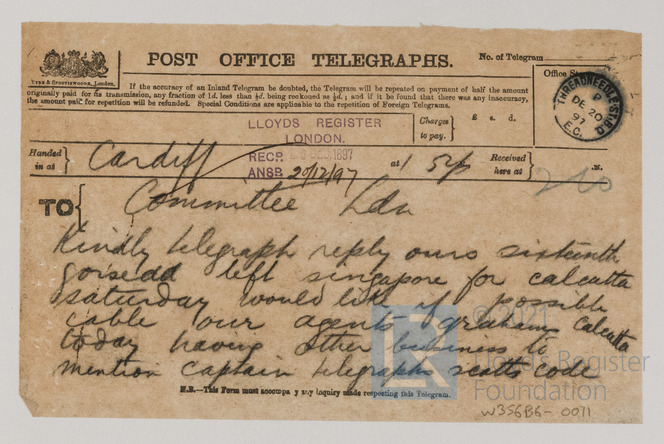 POST OFFICE TELEGRAPHS.
No. of Telegram
EYRE & SPOTTISWOODE, London.
If the accuracy of an Inland Telegram be doubted, the Telegram will be repeated on payment of half the amount
originally paid for its transmission, any fraction of 1d. less than ½d. being reckoned as ½d.; and if it be found that there was any inaccuracy,
the amount paid for repetition will be refunded. Special Conditions are applicable to the repetition of Foreign Telegrams.
Office
THREADNEEDLE ST. B.O.
P
DE 20
97
E.C.
LLOYDS REGISTER
LONDON.
Charges
to pay.
£ s. d.
RECD. DEC. 1897
ANSD. 20/12/97
Handed
in at
Cardiff
at
Received
here at
M.
TO
Committee Ldn
Kindly telegraph reply ours sixteenth
gorsedd left singapore for calcutta
saturday would like if possible
cable our agents grahams calcutta
today having other business to
mention captain telegraphs scotts code
N.B.—This Form must accompany any inquiry made respecting this Telegram.
© 2021
Lloyd's Register
Foundation
W356B6-0011